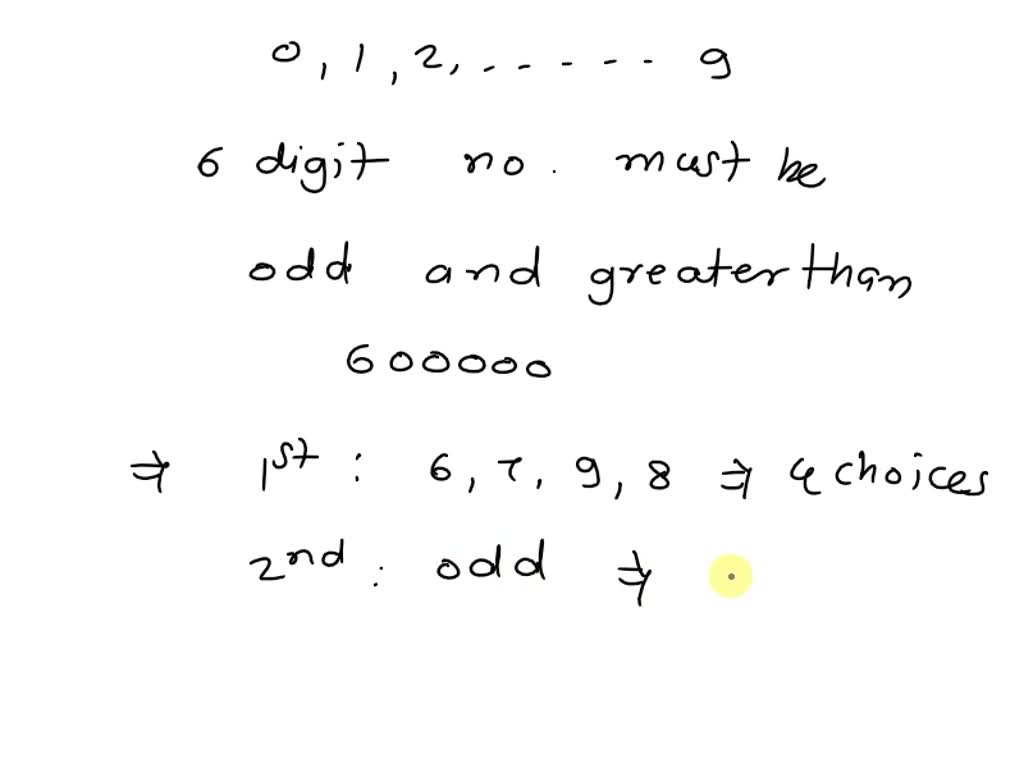 0, 1, 2, - - - - - - 9
6 digit no. must be
odd and greater than
600000
⇒ 1st : 6, 7, 9, 8 ⇒ 4 choices
2nd : odd ⇒